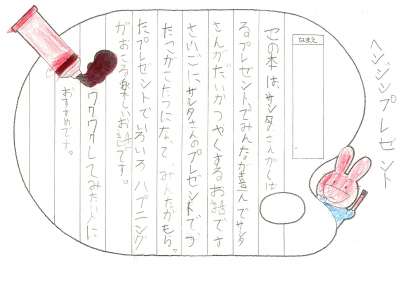 ヘンシンプレゼント
なまえ
この本は、サンタさんがくは
るプレゼントでみんなが喜んでサンタ
さんがだいかつやくするお話です
さいごに、サンタさんのプレゼントでう
たっがきたつになって、みんながもら
たプレゼントでいろいろハプニング
がおこる楽しいお話です。
ワクワクしてみたい人に
おすすめです。